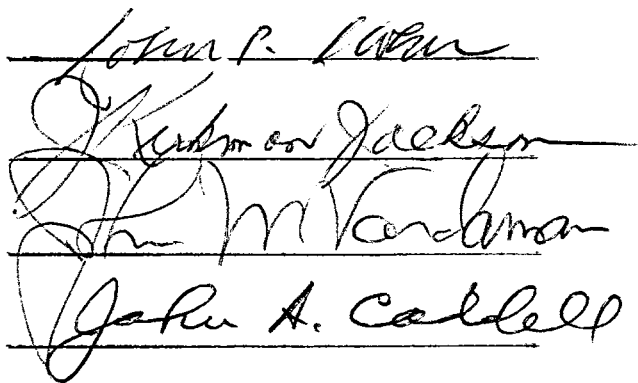 John P.
J Kirkman Jackson
John M Vardaman
John A. Caddell